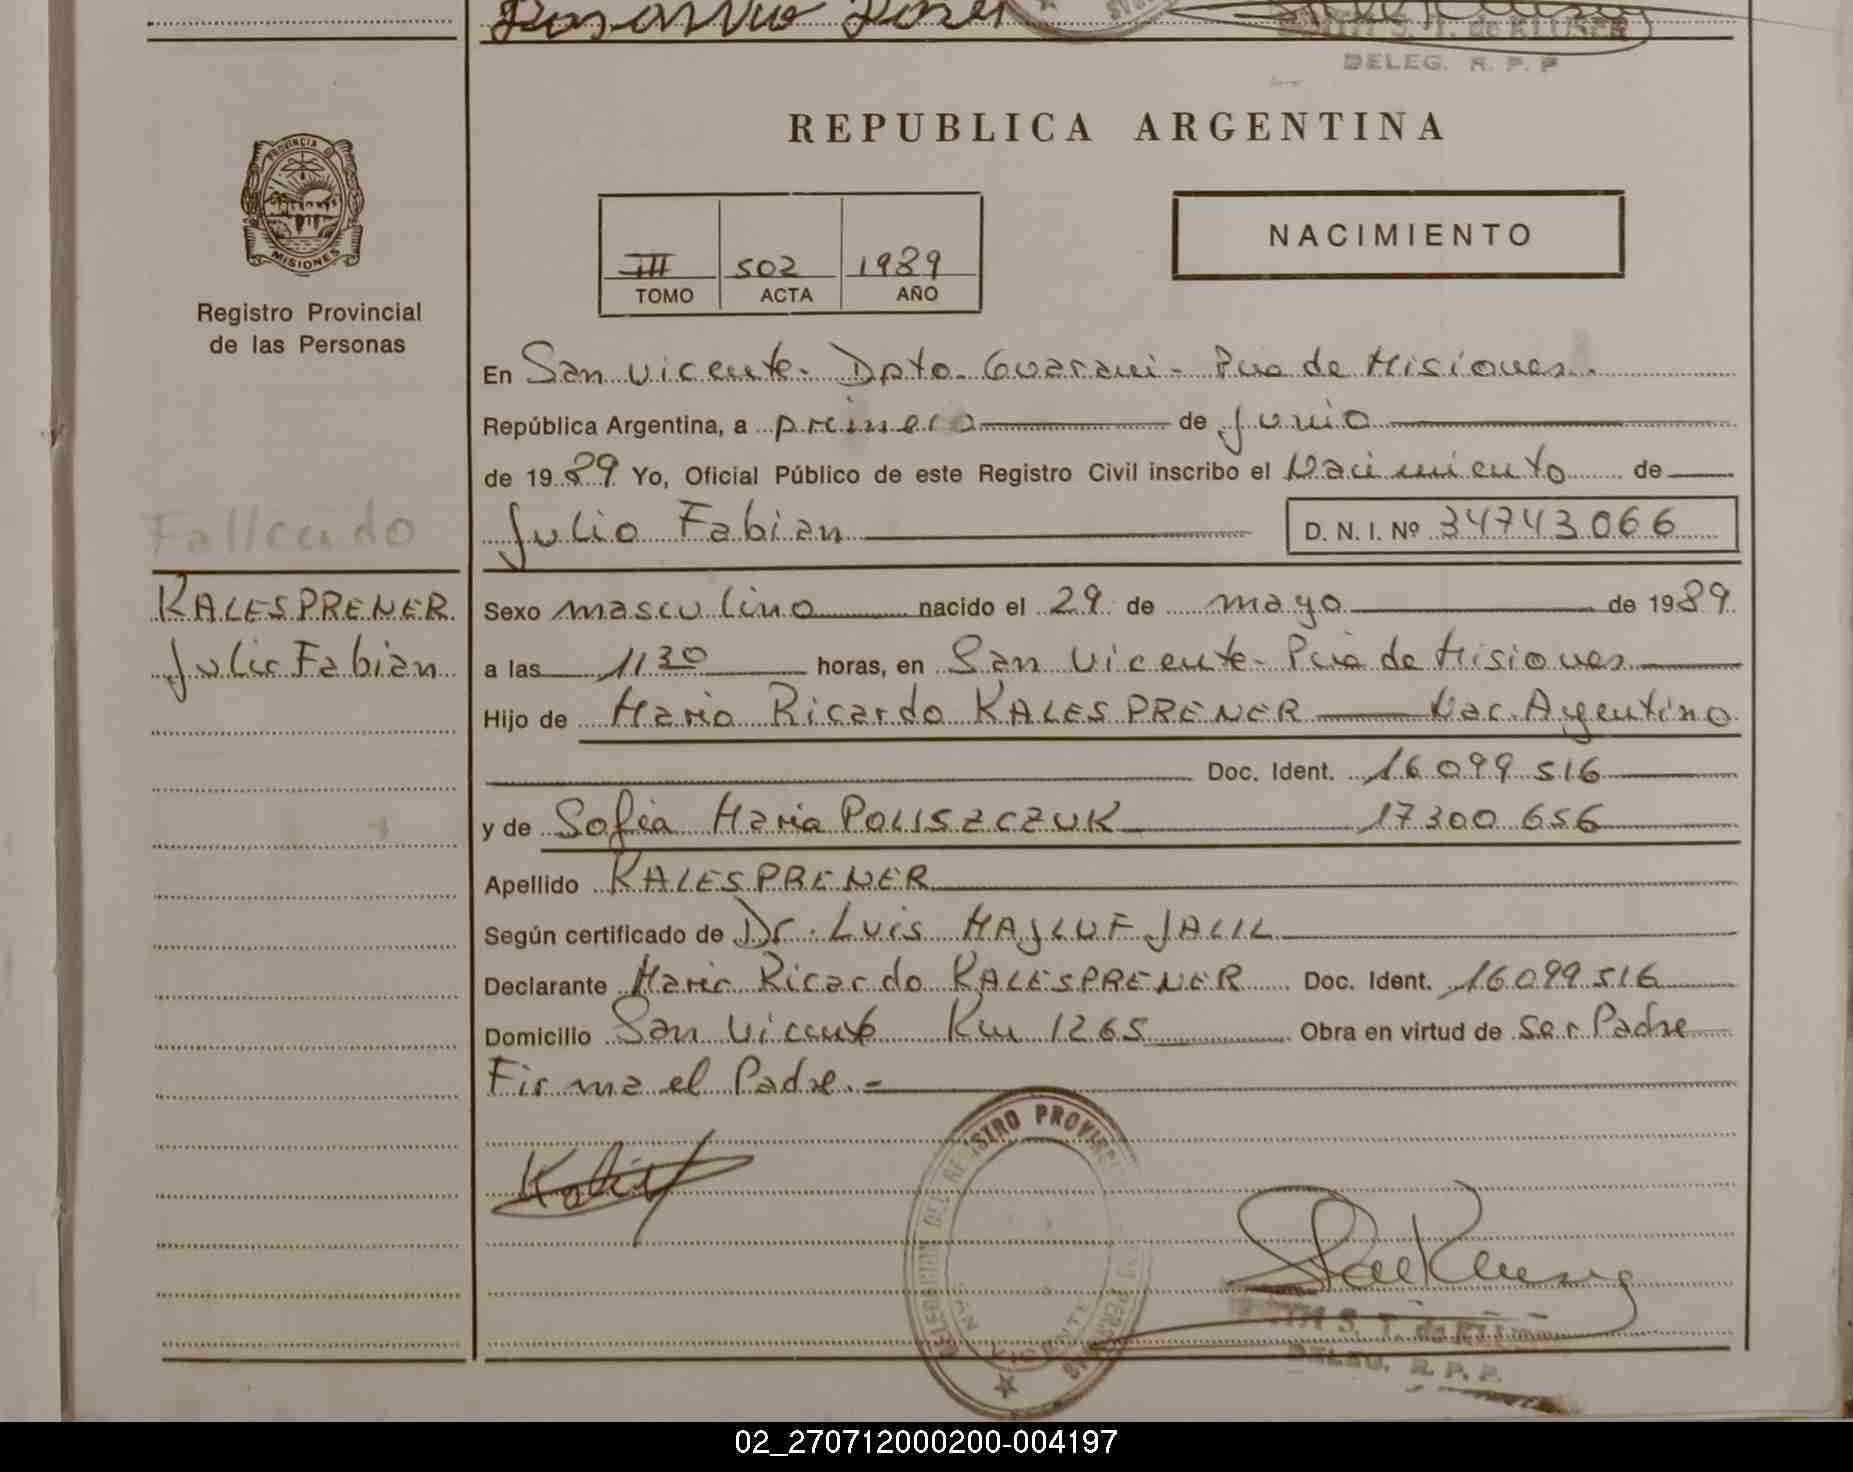 DELEG. R. P. P
REPUBLICA ARGENTINA
PROVINCIA D
MISIONES
Registro Provincial
de las Personas
III 502 1989
TOMO ACTA AÑO
NACIMIENTO
En San Vicente - Dpto. Guarani - Pcia de Misiones.
República Argentina, a primero de Junio
de 1989 Yo, Oficial Público de este Registro Civil inscribo el Nacimiento de
Julio Fabian D. N. I. Nº 34743066
Fallecido
KALESPRENER
Julio Fabian
Sexo masculino nacido el 29 de mayo de 1989
a las 1130 horas, en San Vicente - Pcia de Misiones
Hijo de Mario Ricardo KALESPRENER Nac. Argentino
Doc. Ident. 16 099 516
y de Sofia Maria POLISZCZUK 17300 656
Apellido KALESPRENER
Según certificado de Dr. Luis MAJLUF JALIL
Declarante Mario Ricardo KALESPRENER Doc. Ident. 16099516
Domicilio San Vicente Km 1265 Obra en virtud de ser Padre
Firma el Padre. -
DELEGACION DEL REGISTRO PROVINCIAL
SAN VICENTE
S. T. de
DELEG. R. P. P.
02_270712000200-004197